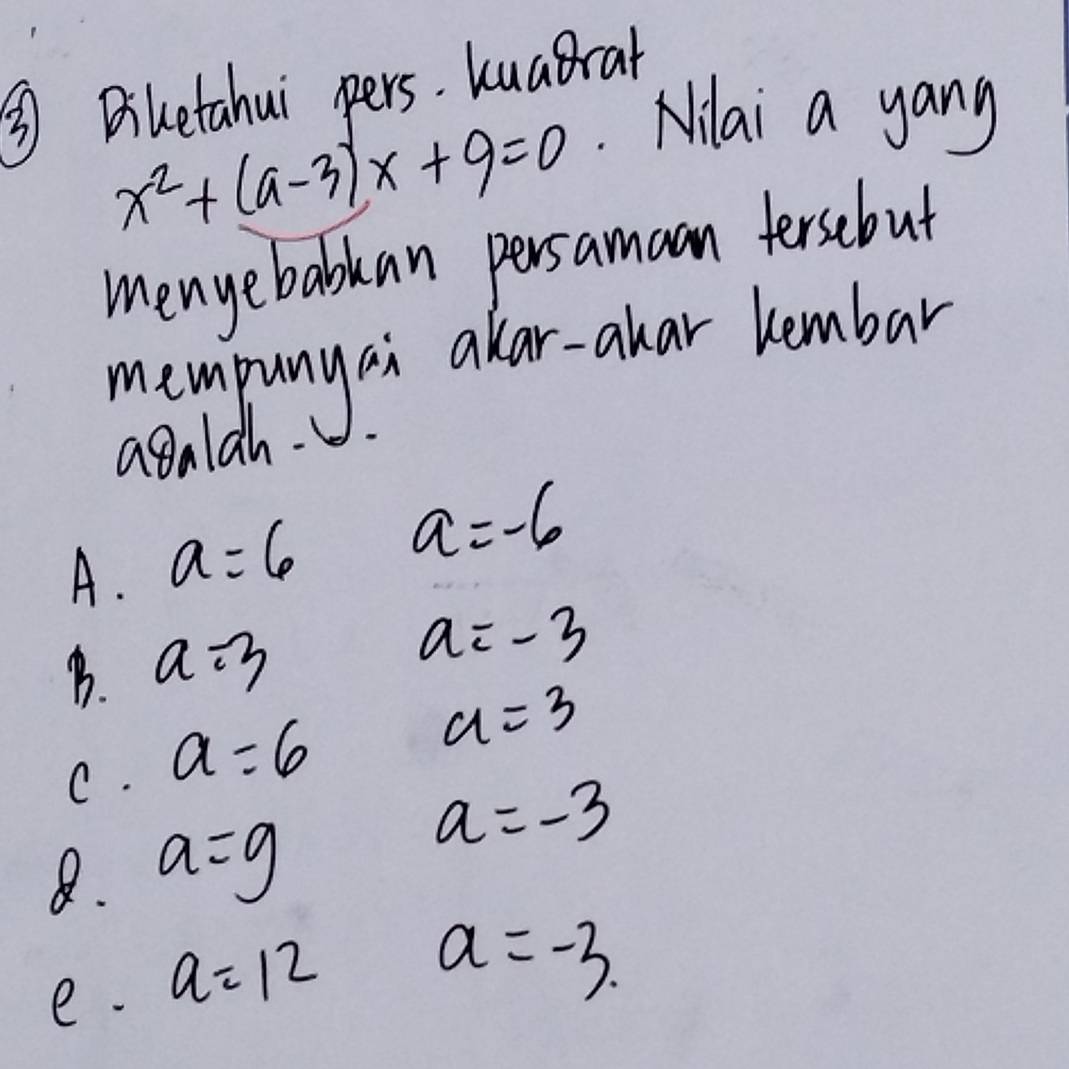 ③ Diketahui pers. kuadrat
x² + (a-3)x + 9 = 0. Nilai a yang
menyebabkan persamaan tersebut
mempunyai akar-akar kembar
adalah ...
A. a = 6 a = -6
B. a = 3 a = -3
c. a = 6 a = 3
d. a = 9 a = -3
e. a = 12 a = -3.